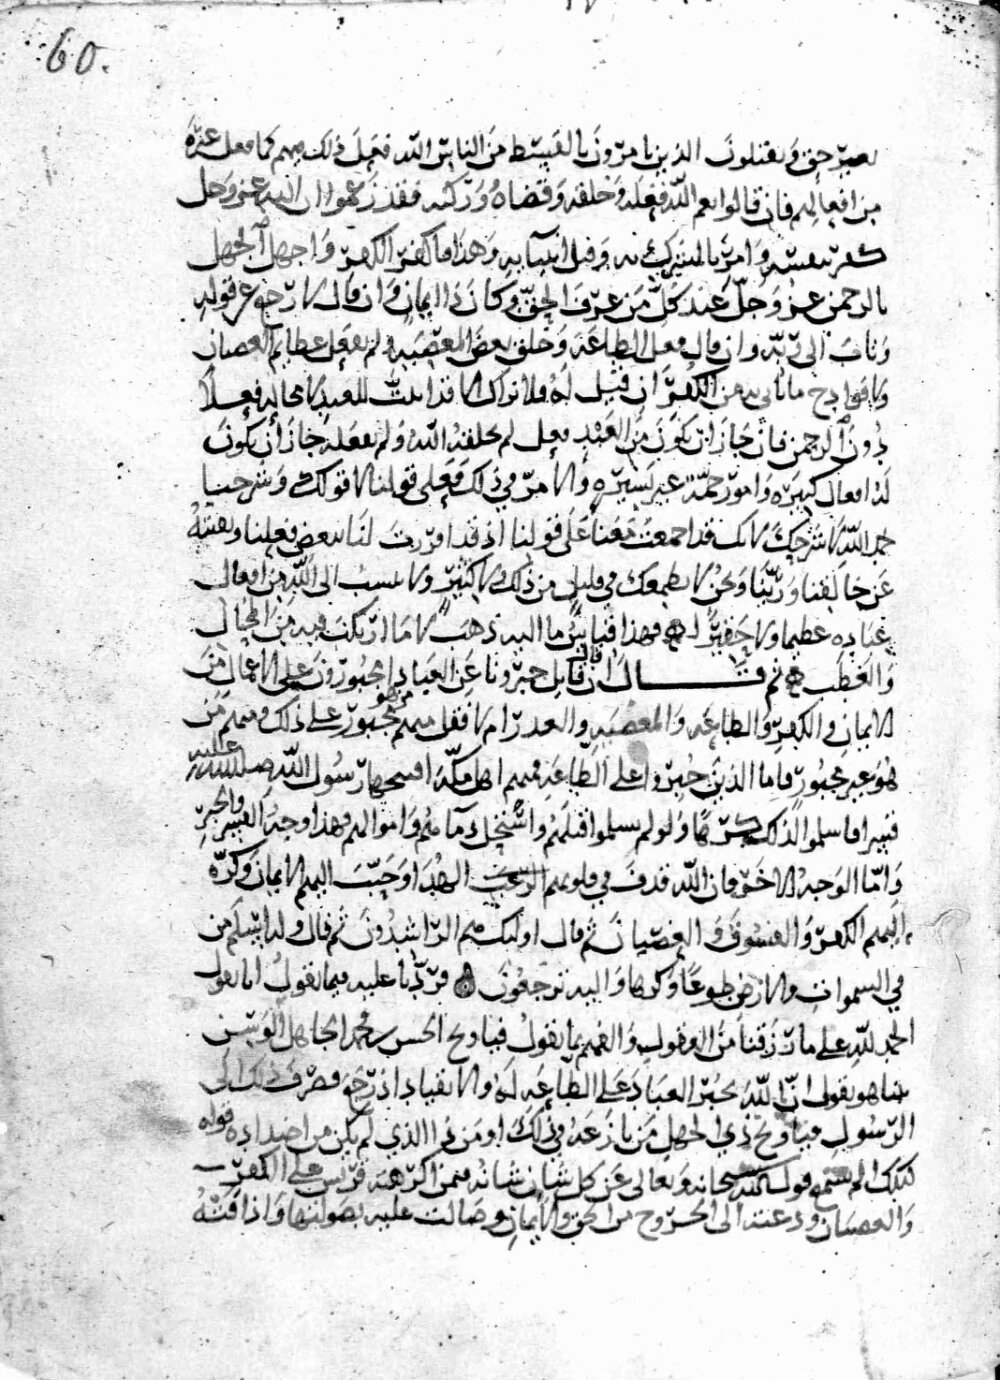 60.
بغير حق ويقتلون الذين يامرون بالقسط من الناس الله فعل ذلك بهم كما فعل غيره
من افعالهم فان قالوا نعم الله فعله وخلقه وقضاه وركبه فقد زعموا ان الله عز وجل
كفر بنفسه وامر بالشرك به وقتل انبيائه وهذا ما كفر الكفر واجهل الجهل
بالرحمن عز وجل عند كل من عرف الحق وكان ذا ايمان وان قال لا رجع عن قوله
وتاب الى ربه وان قال فعل الطاعة وخلق بعض المعصية ولم يفعل عظايم العصيان
ولا فوادح ما ياتي به من الكفران قيل له ولا نراك الا قد اثبت للعبيد لا محالة فعلا
دون الرحمن فان جاز ان يكون من العبد فعل لم يخلقه الله ولم يفعله جاز ان يكون
له افعال كثيرة وامور جمة غير يسيرة والامر في ذلك فعلى قولنا لا قولك وشرحنا
بحمد الله لا شرحك لانك قد اجمعت معنا على قولنا اذ قد اقررت لنا ببعض فعلنا ونفيته
عن خالقنا وربنا ونحن لا نطمعك في قليل من ذلك ولا كثير ولا ننسب الى الله من افعال
عباده عظيما ولا حقيرا فهذا قياس ما اليه ذهبت لا ما ارتكبت فيه من المحال
والعطب ثم قال ان قال قايل خبرونا عن العباد امجبورون على الاعمال من
الايمان والكفر والطاعة والمعصية والعدر ام لا فقل منهم من هو مجبور على ذلك ومنهم من
هو غير مجبور فاما الذين جبروا على الطاعة فمنهم اهل مكة افتتحها رسول الله صلى الله عليه
قسرا فاسلموا لذلك كرها ولو لم يسلموا قتلهم واستحل دماءهم واموالهم فهذا وجه القسر والجبر
واما الوجه الاخر فان الله قذف في قلوبهم الرعب الهدا وحبب اليهم الايمان وكره
اليهم الكفر والفسوق والعصيان ثم قال اولئك هم الراشدون ثم قال وله اسلم من
في السموات والارض طوعا وكرها واليه ترجعون فردنا عليه فيما يقول انا نقول
الحمد لله على ما رزقنا من العقول والفهم بما يقول فيا ويح الحسن بن محمد الجاهل الوسن
بينا هو يقول ان الله يجبر العباد على الطاعة له والانقياد اذ رجع فصرف ذلك الى
الرسول فيا ويح ذي الجهل من نازعه في ذلك او من ذا الذي لم يكن من اضداده قوله
كذلك الم يسمع قول الله سبحانه وتعالى عن كل شان شانه فيمن اكرهته قريش على الكفر
والعصيان ودعته الى الخروج من الحق والايمان وصالت عليه بصولتها واذاقته